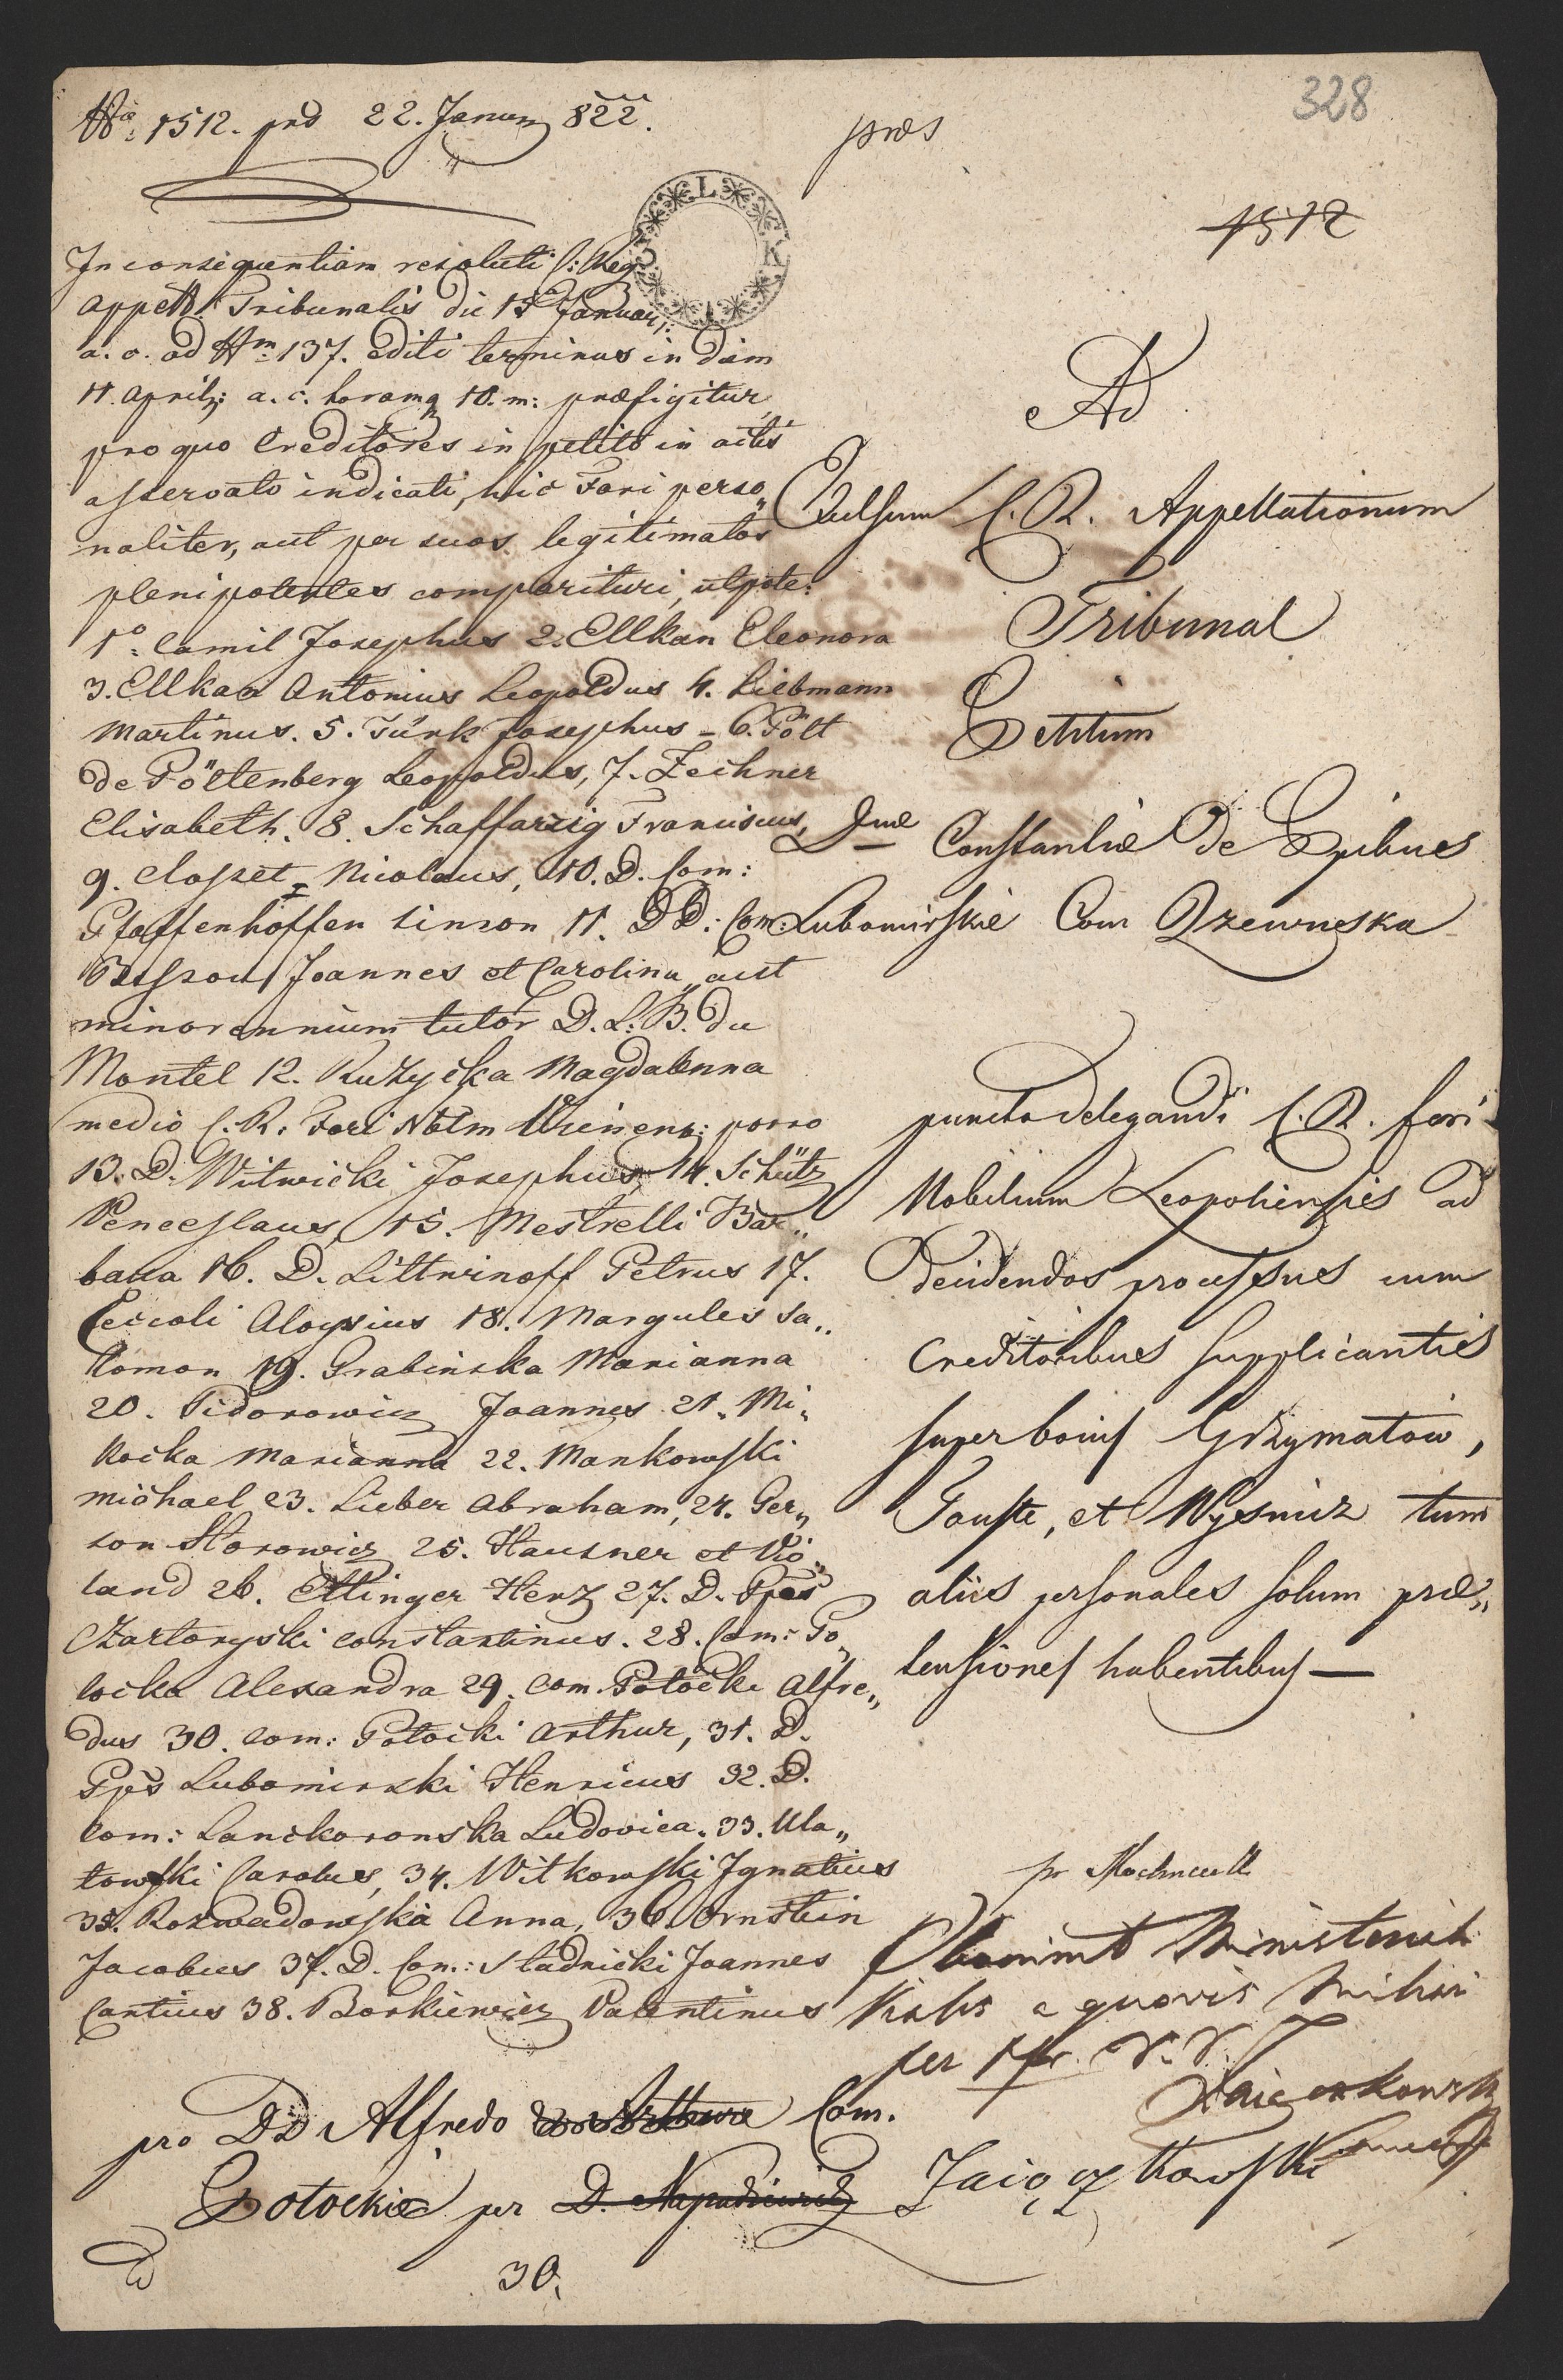 328
Nro: 1512. prd 22. Januarij 822.
præs
1512
L
K
In consequentiam resoluti C: Reg:
Appell: Tribunalis die 15 Januarij
a. c. ad Nrm: 137. editi terminus in diem
11 Aprilis a. c. horamq 10. m: præfigitur,
pro quo Creditores in petito in actis
asservato indicati, hic Fori perso„
naliter, aut per suos legitimatos
plenipotentes comparituri, utpote:
1o: Camil Josephus 2. Ellkan Eleonora
3. Ellkan Antonius Leopoldus 4. Liebmann
Martinus. 5. Türk Josephus – 6. Pölt
de Pöltenberg Leopoldus, 7. Zechner
Elisabeth. 8. Schaffarzig Franciscus,
9. Closset Nicolaus, 10. D. Com:
Pfaffenhoffen Simon 11. DD. Com:
Joannes et Carolina aut
minorennium tutor D. L: B. du
Montel 12. Rużycka Magdalenna
medio C. R. Fori Nblm porro
13. D. Witwicki Josephus 14. Schütz
Venceslaus, 15. Mestrelli Bar„
bara 16. D. Littwinoff Petrus 17.
Ceccoli Aloysius 18. Margules Sa„
lomon 19. Grabinska Marianna
20. Fidorowicz Joannes 21. Mi„
kocka Marianna 22. Mankowski
Michael 23. Lieber Abraham, 24. Ger„
son Horowicz 25. Hausner et Vio„
land 26. Ettinger Herz 27. D. Pps
Czartoryski Constantinus. 28. Com: Po„
tocka Alexandra 29. Com. Potocki Alfre„
dus 30. Com: Potocki Arthur, 31. D.
Pps Lubomirski Henricus 32. D.
Com: Lanckoronska Ludovica. 33. Ula„
towski Carolus, 34. Witkowski Ignatius
35. Rozwadowska Anna, 36. Ornstein
Jacobus 37. D. Com: Stadnicki Joannes
Cantius 38. Borkiewicz Valentinus
pro DD Alfredo et Arthuro Com.
Potockie per D.
30.
Ad
Excelsum C. R. Appellationum
Tribunal
Petitum
Dnæ Constantiæ de Ppibus
Lubomirskie Com Rzewuska
puncto delegandi C. R. fori
Nobilium Leopoliensis ad
decidendos processus cum
Creditoribus supplicantis
super bonis Grzymałow,
Touste, et Wysnicz tum
aliis personales solum præ„
tensiones habentibus —
pr
a quovis
per
Zaiączkowski